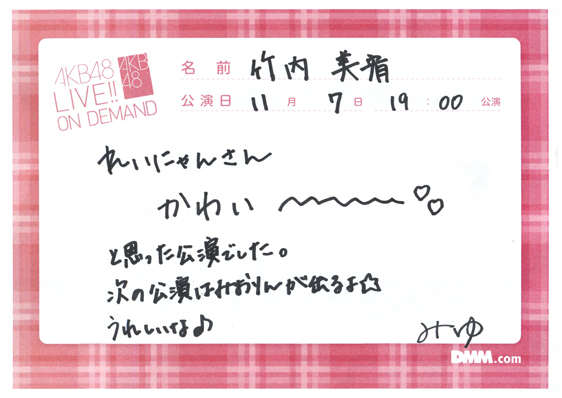 AKB48
LIVE!!
ON DEMAND
AKB
48
名前 竹内 美宥
公演日 11月 7日 19:00 公演
れいにゃんさん
かわい〜〜〜〜♡♡
と思った公演でした。
次の公演はみおりんが出るよ☆
うれしいな♪
みゆ
DMM.com